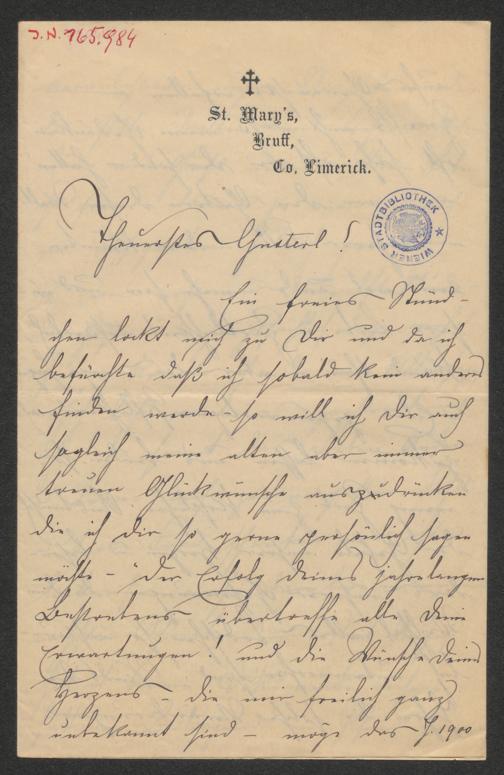 J.N. 165.984
St. Mary's,
Bruff,
Co. Limerick.
WIENER STADTBIBLIOTHEK
Theuerstes Gusterl!
Ein freies Stünd-
chen lockt mich zu Dir und da ich
befürchte daß ich sobald kein anderes
finden werde – so will ich Dir auch
sogleich meine alten aber immer
treuen Glückwünsche auszudrücken
die ich dir so gerne persönlich sagen
möchte – "Der Erfolg deines jahrelangen
Bestrebens übertreffe alle Deine
Erwartungen! und die Wünsche Deines
Herzens – die mir freilich ganz
unbekannt sind – möge das J. 1900